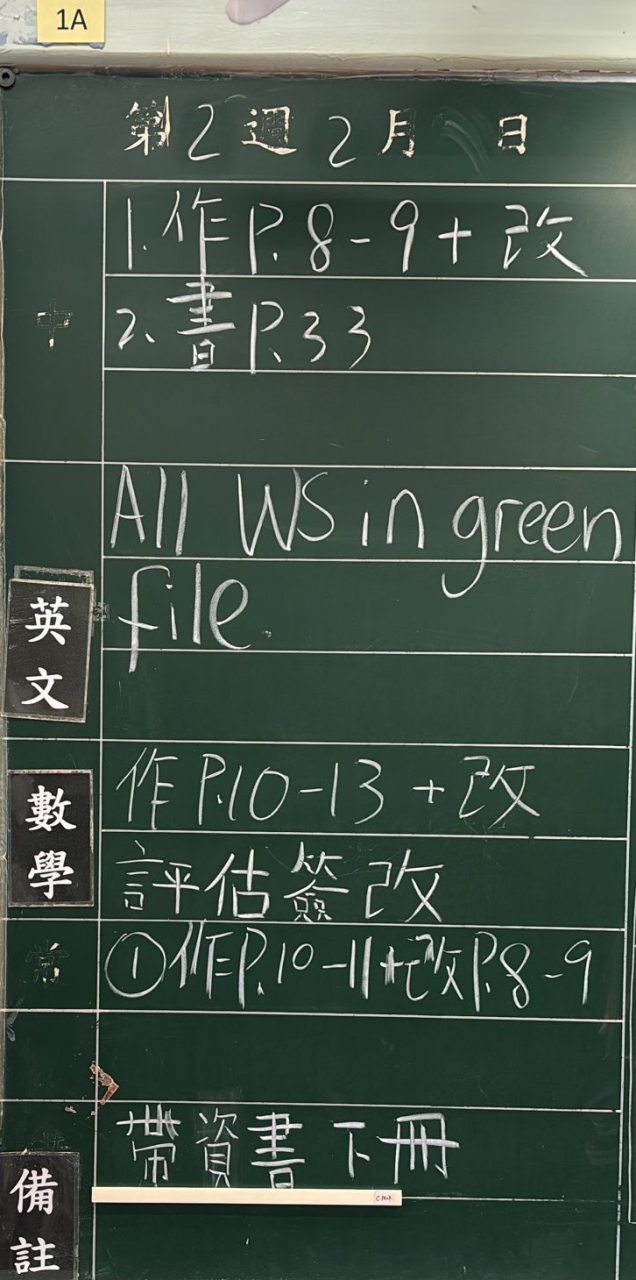 1A
第2週2月 日
中
1.作P.8-9+改
2.書P.33
英文
All WS in green
file.
數學
作P.10-13+改
評估簽改
常
①作P.10-11+改P.8-9
備註
帶資書下冊